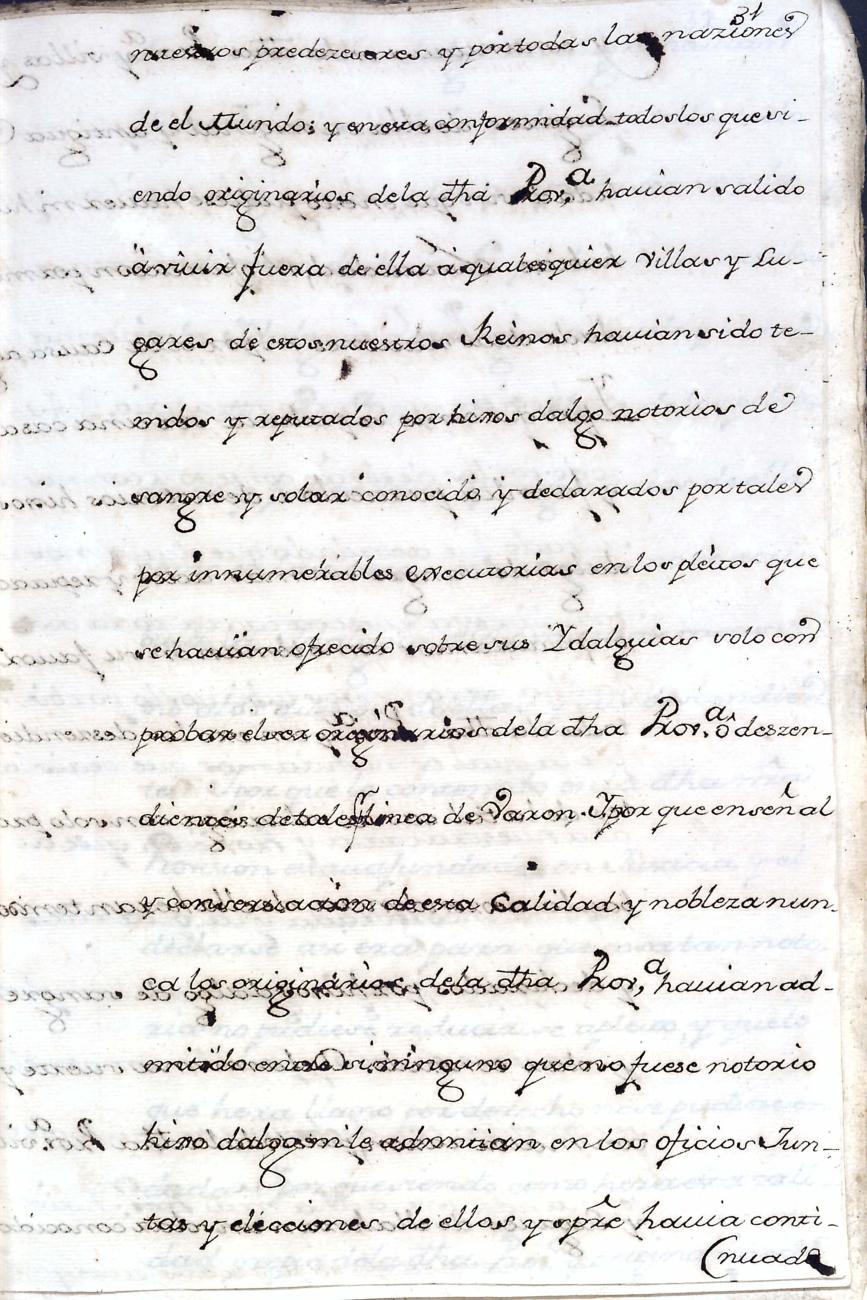 31
nuestros predezesores y por todas las naziones
de el Mundo; y en esta conformidad todos los que si-
endo originarios dela dha Prov,ª hauian salido
à viuir fuera de ella à qualesquier Villas y Lu-
gares de estos nuestros Reinos hauian sido te-
nidos y reputados por hixos dalgo notorios de
sangre y solar conocido y declarados por tales
por innumerables executorias en los pleitos que
se hauian ofrecido sobre sus Ydalguias solo con
probar el ser originarios dela dha Prov.ª ô deszen-
dientes de tales linea de Varon. Y por que en señal
y conversiacion de esta Calidad y nobleza nun-
ca los originarios dela dha Prov,ª hauian ad-
mitido entre si ninguno que no fuese notorio
hixo dalgo ni le admitian en los oficios Jun-
tas y elecciones de ellos y spre hauia conti-
nuado